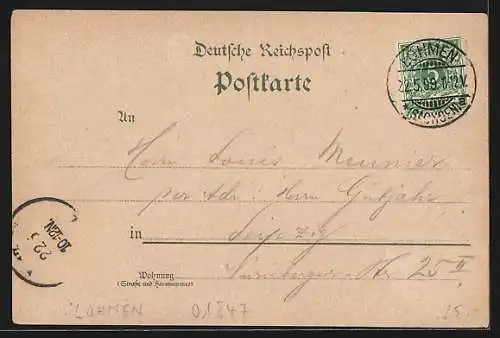 Deutsche Reichspost
Postkarte
LOHMEN
22.5.99.11-12V.
(SACHSEN)
An
Herrn Louis Meunier
per Adr: Herrn Gutjahr
in Leipzig
Wohnung
(Straße und Hausnummer)
Nürnberger Str 25 II
22 5
10-12N.
LOHMEN 01847
15.-